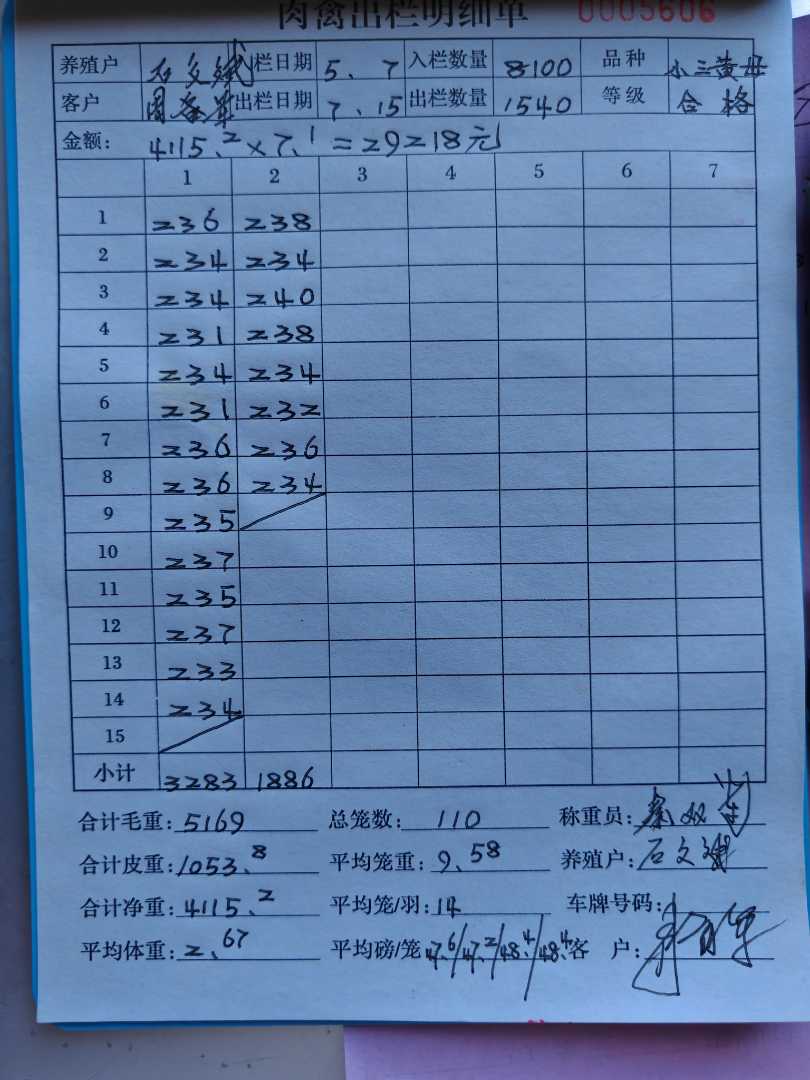 肉禽出栏明细单 0005606
养殖户 石文斌 栏日期 5、7 入栏数量 8100 品种 小三黄母
客户 出栏日期 7、15 出栏数量 1540 等级 合格
金额: 4115.2×7.1=29218元
1 2 3 4 5 6 7
1 236 238
2 234 234
3 234 240
4 231 238
5 234 234
6 231 232
7 236 236
8 236 234
9 235
10 237
11 235
12 237
13 233
14 234
15
小计 3283 1886
合计毛重: 5169 总笼数: 110 称重员:
合计皮重: 1053.8 平均笼重: 9.58 养殖户: 石文斌
合计净重: 4115.2 平均笼/羽: 14 车牌号码:
平均体重: 2.67 平均磅/笼 47.6/47.2/48.4/48.4 客户: